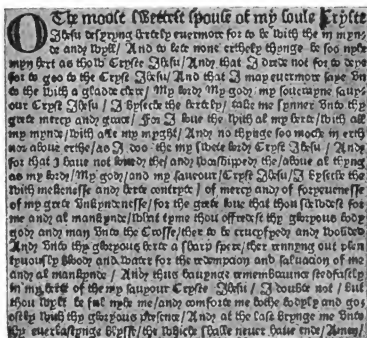 O The moost sweettest spouse of my soule Cryste
Jhesu desyryng hertely euermore for to be with the in myn-
de and wyll / And to lete none erthely thynge be soo nyhe
myn hert as thow Cryste Jhesu / And that I drede not for to deye
for to goo to the Cryste Jhesu / And that I may euermore saye vn
to the with a gladde chere / My lord My god / my souerayne sauy-
our Cryste Jhesu / I byseche the hertely / take me synner vnto thy
grete mercy and grace / For I loue the with all my herte / with all
my mynde / with alle my myght / And no thynge soo moche in erth
nor aboue erthe / as I doo the my swete lord Cryst Jhesu / And
for that I haue not loued the / and worshipped the / aboue al thyng
as my lord / My god / and my saueour / Cryste Jhesu / I byseche the
with mekenesse and herte contryte / of mercy and of foryeuenesse
of my grete vnkyndnesse / for the grete loue that thou shewdest for
me and al mankynde / What tyme thou offredest thy gloryous body
god and man vnto the Crosse / ther to be crucyfyed and wounded
And vnto thy gloryous herte a sharp spere / ther rennyng out plen
tyuously blood and water for the redempcion and saluacion of me
and al mankynde / And thus hauynge remembraunce stedfastly
in my hert of the my sauyour Cryste Jhesu / I doubte not / but
thou wylt be ful nyhe me / and comforte me bothe bodyly and gos
ostly with thy gloryous presence / And at the last brynge me vnto
thy euerlastynge blysse / the whiche shalle neuer haue ende / Amen /